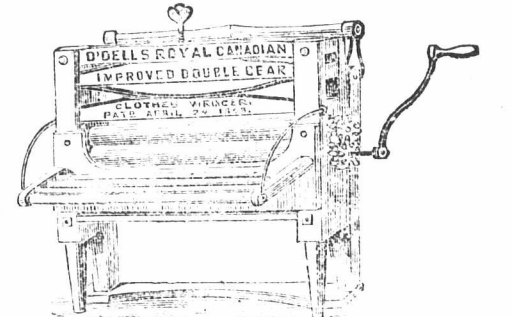 O'DELLS ROYAL CANADIAN
IMPROVED DOUBLE GEAR
CLOTHES WRINGER.
PATD APRIL 24